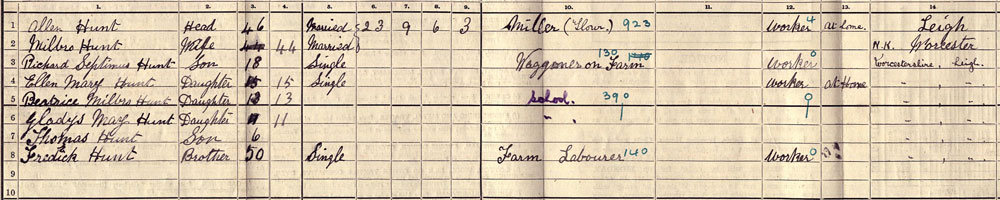 1. 2. 3. 4. 5. 6. 7. 8. 9. 10. 11. 12. 13. 14.
1 Allen Hunt Head 46 Married 23 9 6 3 Miller (Flour) 923 Worker 4 at Home. Leigh
2 Milbro Hunt Wife 44 Married N.K. Worcester
3 Richard Septimus Hunt Son 18 Single Waggoner on Farm 130 Worker 0 Worcestershire, Leigh.
4 Ellen Mary Hunt Daughter 15 Single worker at Home " "
5 Beatrice Milbro Hunt Daughter 13 school. 390 0 " "
6 Gladys May Hunt Daughter 11 " " "
7 Thomas Hunt Son 6 " "
8 Fredick Hunt Brother 50 Single Farm Labourer 140 Worker 0 " "
9
10